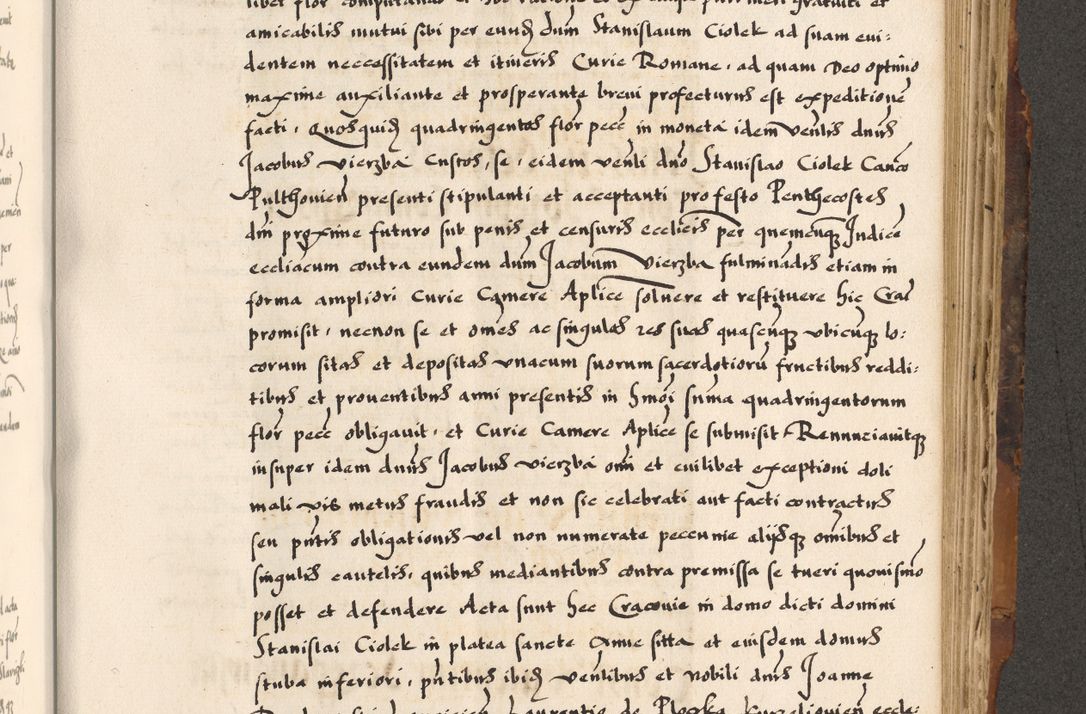 amicabilis mutui sibi per eund dnm Stanislaum Ciolek ad suam evi:
dentem neccessitatem et itineris Curie Romane, ad quam Deo optimo
maxime auxiliante et prosperante brevi profecturus est expeditione
facti, Quosquid quadringentos flor pecc in moneta idem venlis dnus
Jacobus Vierzba Custos, se, eidem venli dno Stanislao Ciolek Canco
Pulthovien presenti stipulanti et acceptanti pro festo Penthecostes
dni proxime futuro sub penis et censuris eccleis per quemcunq Judice
eccliacum contra eundem dnm Jacobum Vierzba fulminadis etiam in
forma ampliori Curie Camere Aplice solvere et restituere hic Crac
promisit, necnon se et omes ac singulas res suas quascunq ubicunq lo:
corum sitas et depositas unacum suorum sacerdotioru fructibus reddi:
tibus et proventibus anni presentis in hmoi suma quadringentorum
flor pecc obligavit, et Curie Camere Aplice se submisit, Renunciavitq
insuper idem dnus Jacobus Vierzba omi et cuilibet exceptioni doli
mali vis metus fraudis et non sic celebrati aut facti contractus
seu pntis obligationis vel non numerate peccunie alijsq omibus et
singulis cautelis, quibus mediantibus contra premissa se tueri quovismo
posset et defendere Acta sunt hec Cracovie in domo dicti domini
Stanislai Ciolek in platea sancte Anne sitta et eiusdem domus
stuba inferiori, pntibus ibid venlibus et nobili dnis Joanne